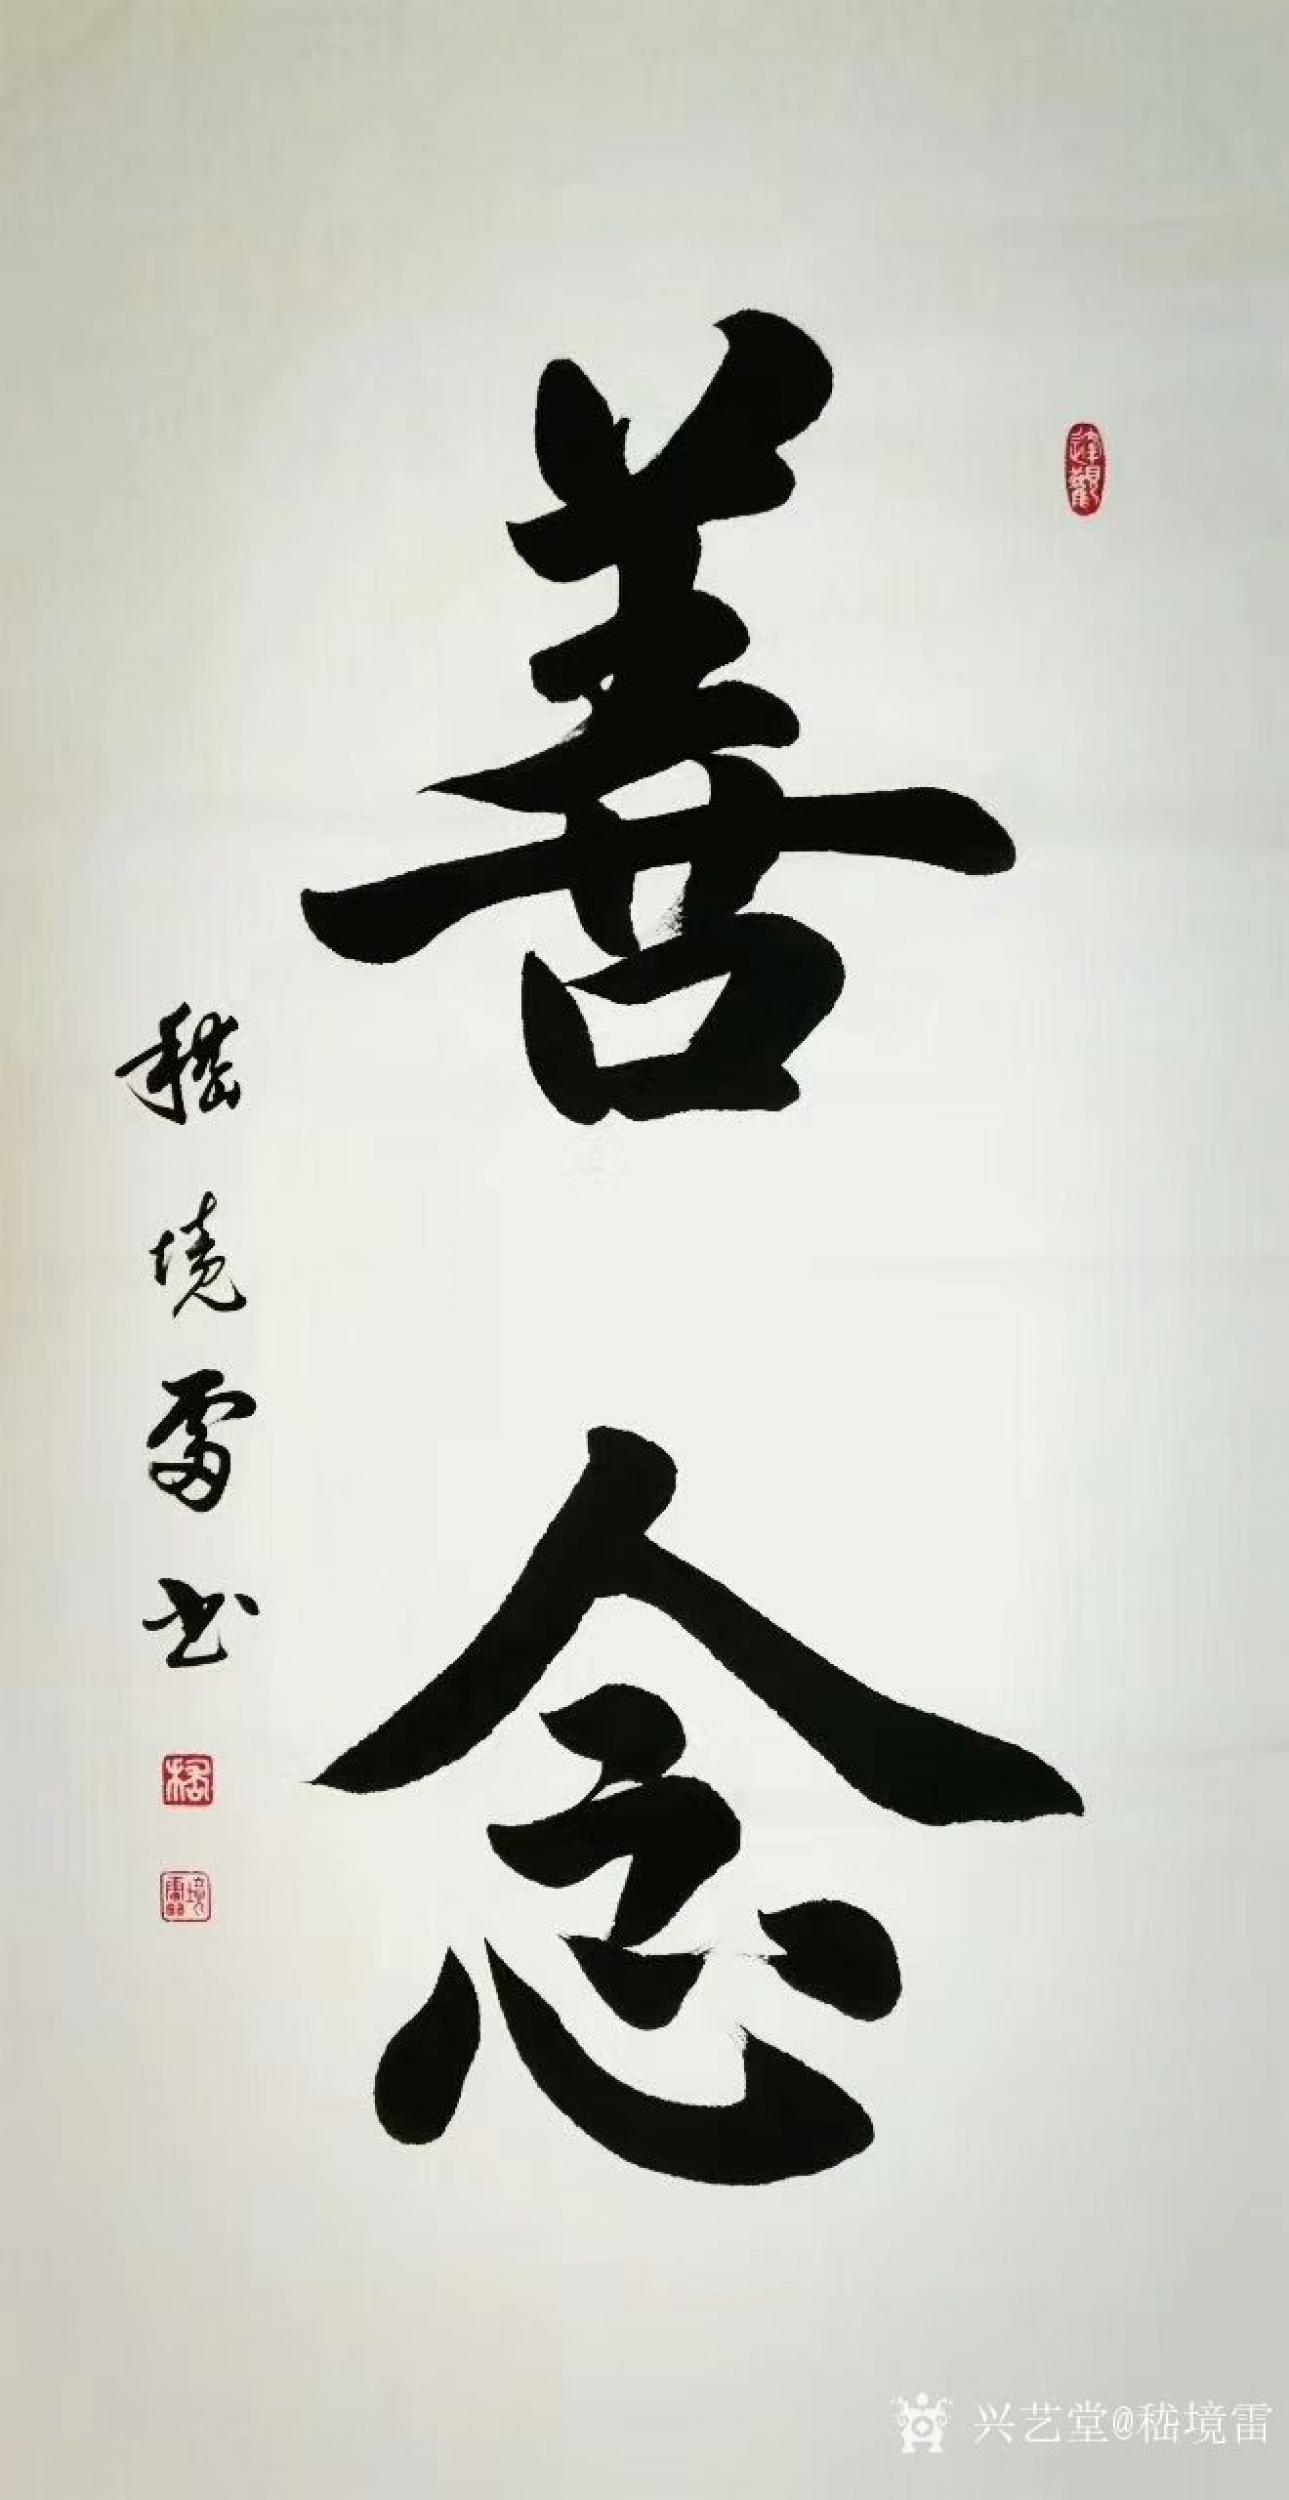 達觀
善念
嵇境雷书
嵇
境雷
兴艺堂@嵇境雷